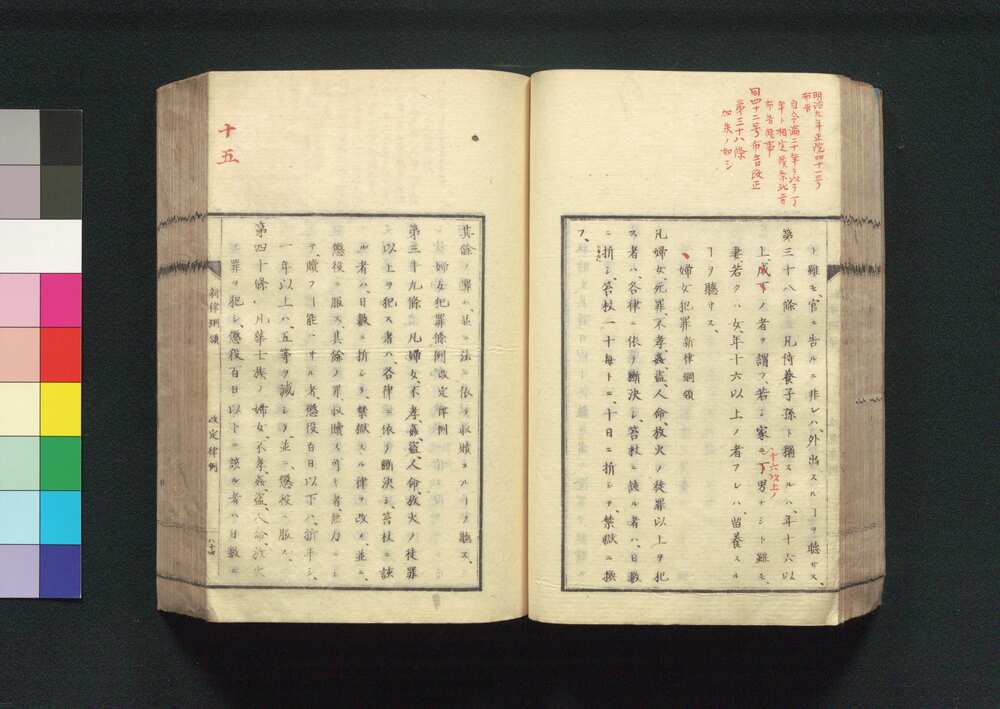 明治九年正院四十一号
布告
自今満二十年ヲ以テ丁
年ト相定候条此旨
布告候事
同四十二号布告改正
第三十八條
加朱ノ如シ
ト雖モ、官ニ告ルニ非レハ、外出スルヿヲ聴サス、
第三十八條 凡侍養子孫ト稱スルハ、年十六以
上、成丁ノ者ヲ謂フ、若シ家ニ丁男ナシト雖モ、
十六以上ノ
妻若クハ女、年十六以上ノ者アレハ、留養スル
ヿヲ聴サス、
婦女犯罪 新律綱領
凡婦女、死罪、不孝、姦、盗、人命、放火ノ徒罪以上ヲ犯
ス者ハ、各律ニ依テ断決シ、笞杖ニ該ル者ハ、日数
ニ折シ、笞杖一十毎トニ、十日ニ折シテ、禁獄ニ換
フ、
十五
其餘ノ罪ハ、並ニ法ニ依テ収贖スルヿヲ聴ス、
婦女犯罪條例 改定律例
第三十九條 凡婦女、不孝、姦、盗、人命、放火ノ徒罪
以上ヲ犯ス者ハ、各律ニ依テ断決シ、笞杖ニ該
ル者ハ、日數ニ折シテ、禁獄スル律ヲ改メ、並ニ、
懲役ニ服ス、其餘ノ罪、収贖ス可キ者、無力ニシ
テ、贖フヿ能ハサル者、懲役百日以下ハ、折半シ、
一年以上ハ、五等ヲ減シテ、並ニ、懲役ニ服ス、
第四十條 凡華士族ノ婦女、不孝、姦、盗、人命、放火
ノ罪ヲ犯シ、懲役百日以下ニ該ル者ハ、日數ニ
新律綱領 改定律例 八十四